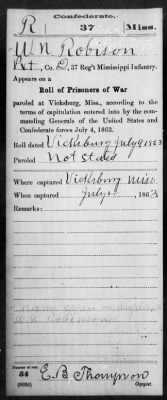 Confederate.
R 37 Miss.
W. N. Robison
Pvt, Co. D, 37 Reg't Mississippi Infantry.
Appears on a
Roll of Prisoners of War
paroled at Vicksburg, Miss., according to the
terms of capitulation entered into by the com-
manding Generals of the United States and
Confederate forces July 4, 1863.
Roll dated Vicksburg July 9 1863
Paroled Not stated
Where captured Vicksburg Miss
When captured July 4, 1863
Remarks:
Number of roll:
54
E. B. Thompson
Copyist.